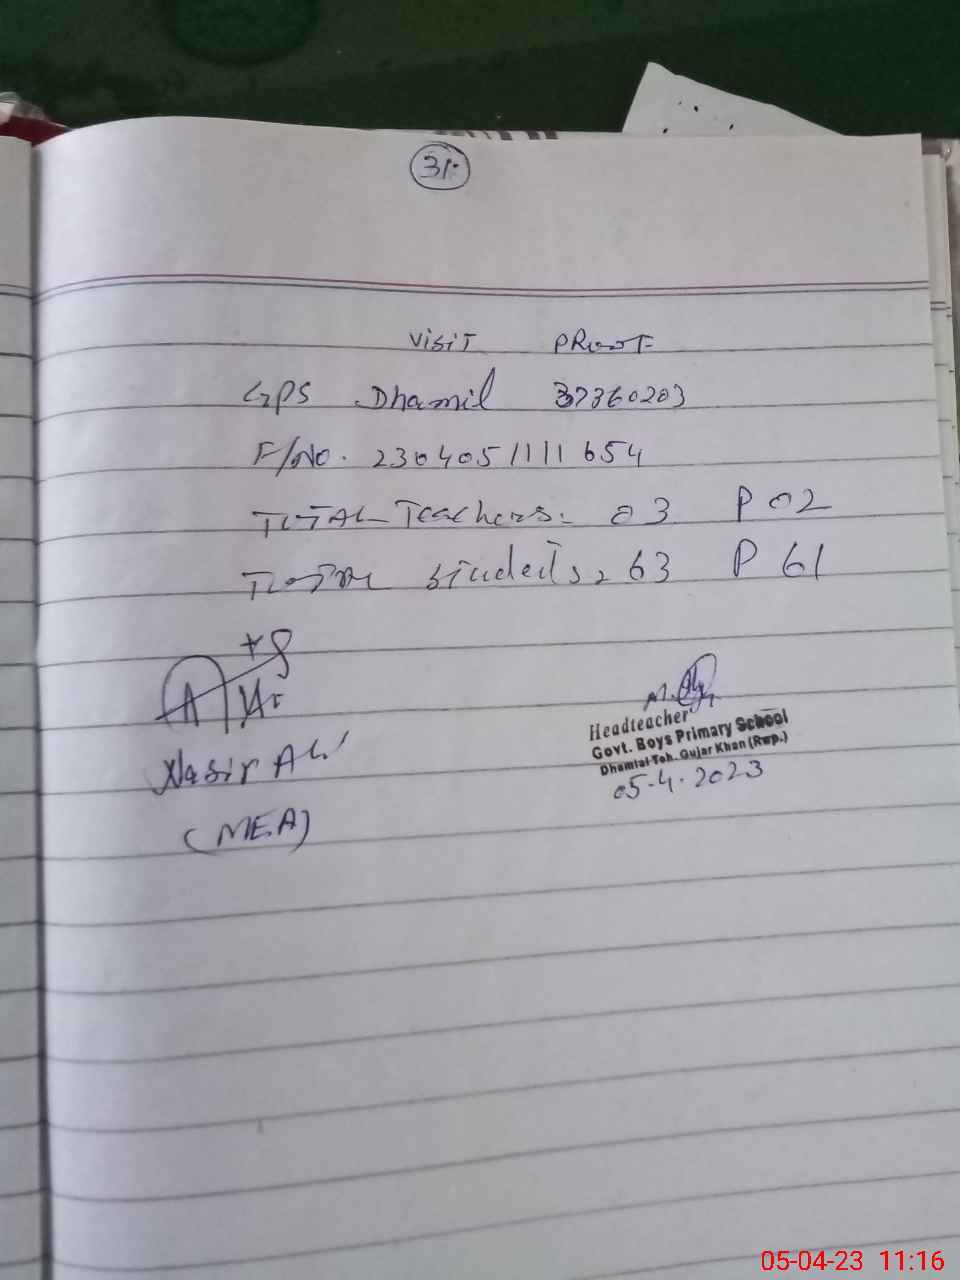 31
Visit PRooF
GPS Dhamil 37360203
F/No. 2304051111654
TOTAL Teachers. 03 P 02
TOTAL Students, 63 P 61
Nasir Ali
(MEA)
Headteacher
Govt. Boys Primary School
Dhamial Teh. Gujar Khan (Rwp.)
05-4-2023
05-04-23 11:16